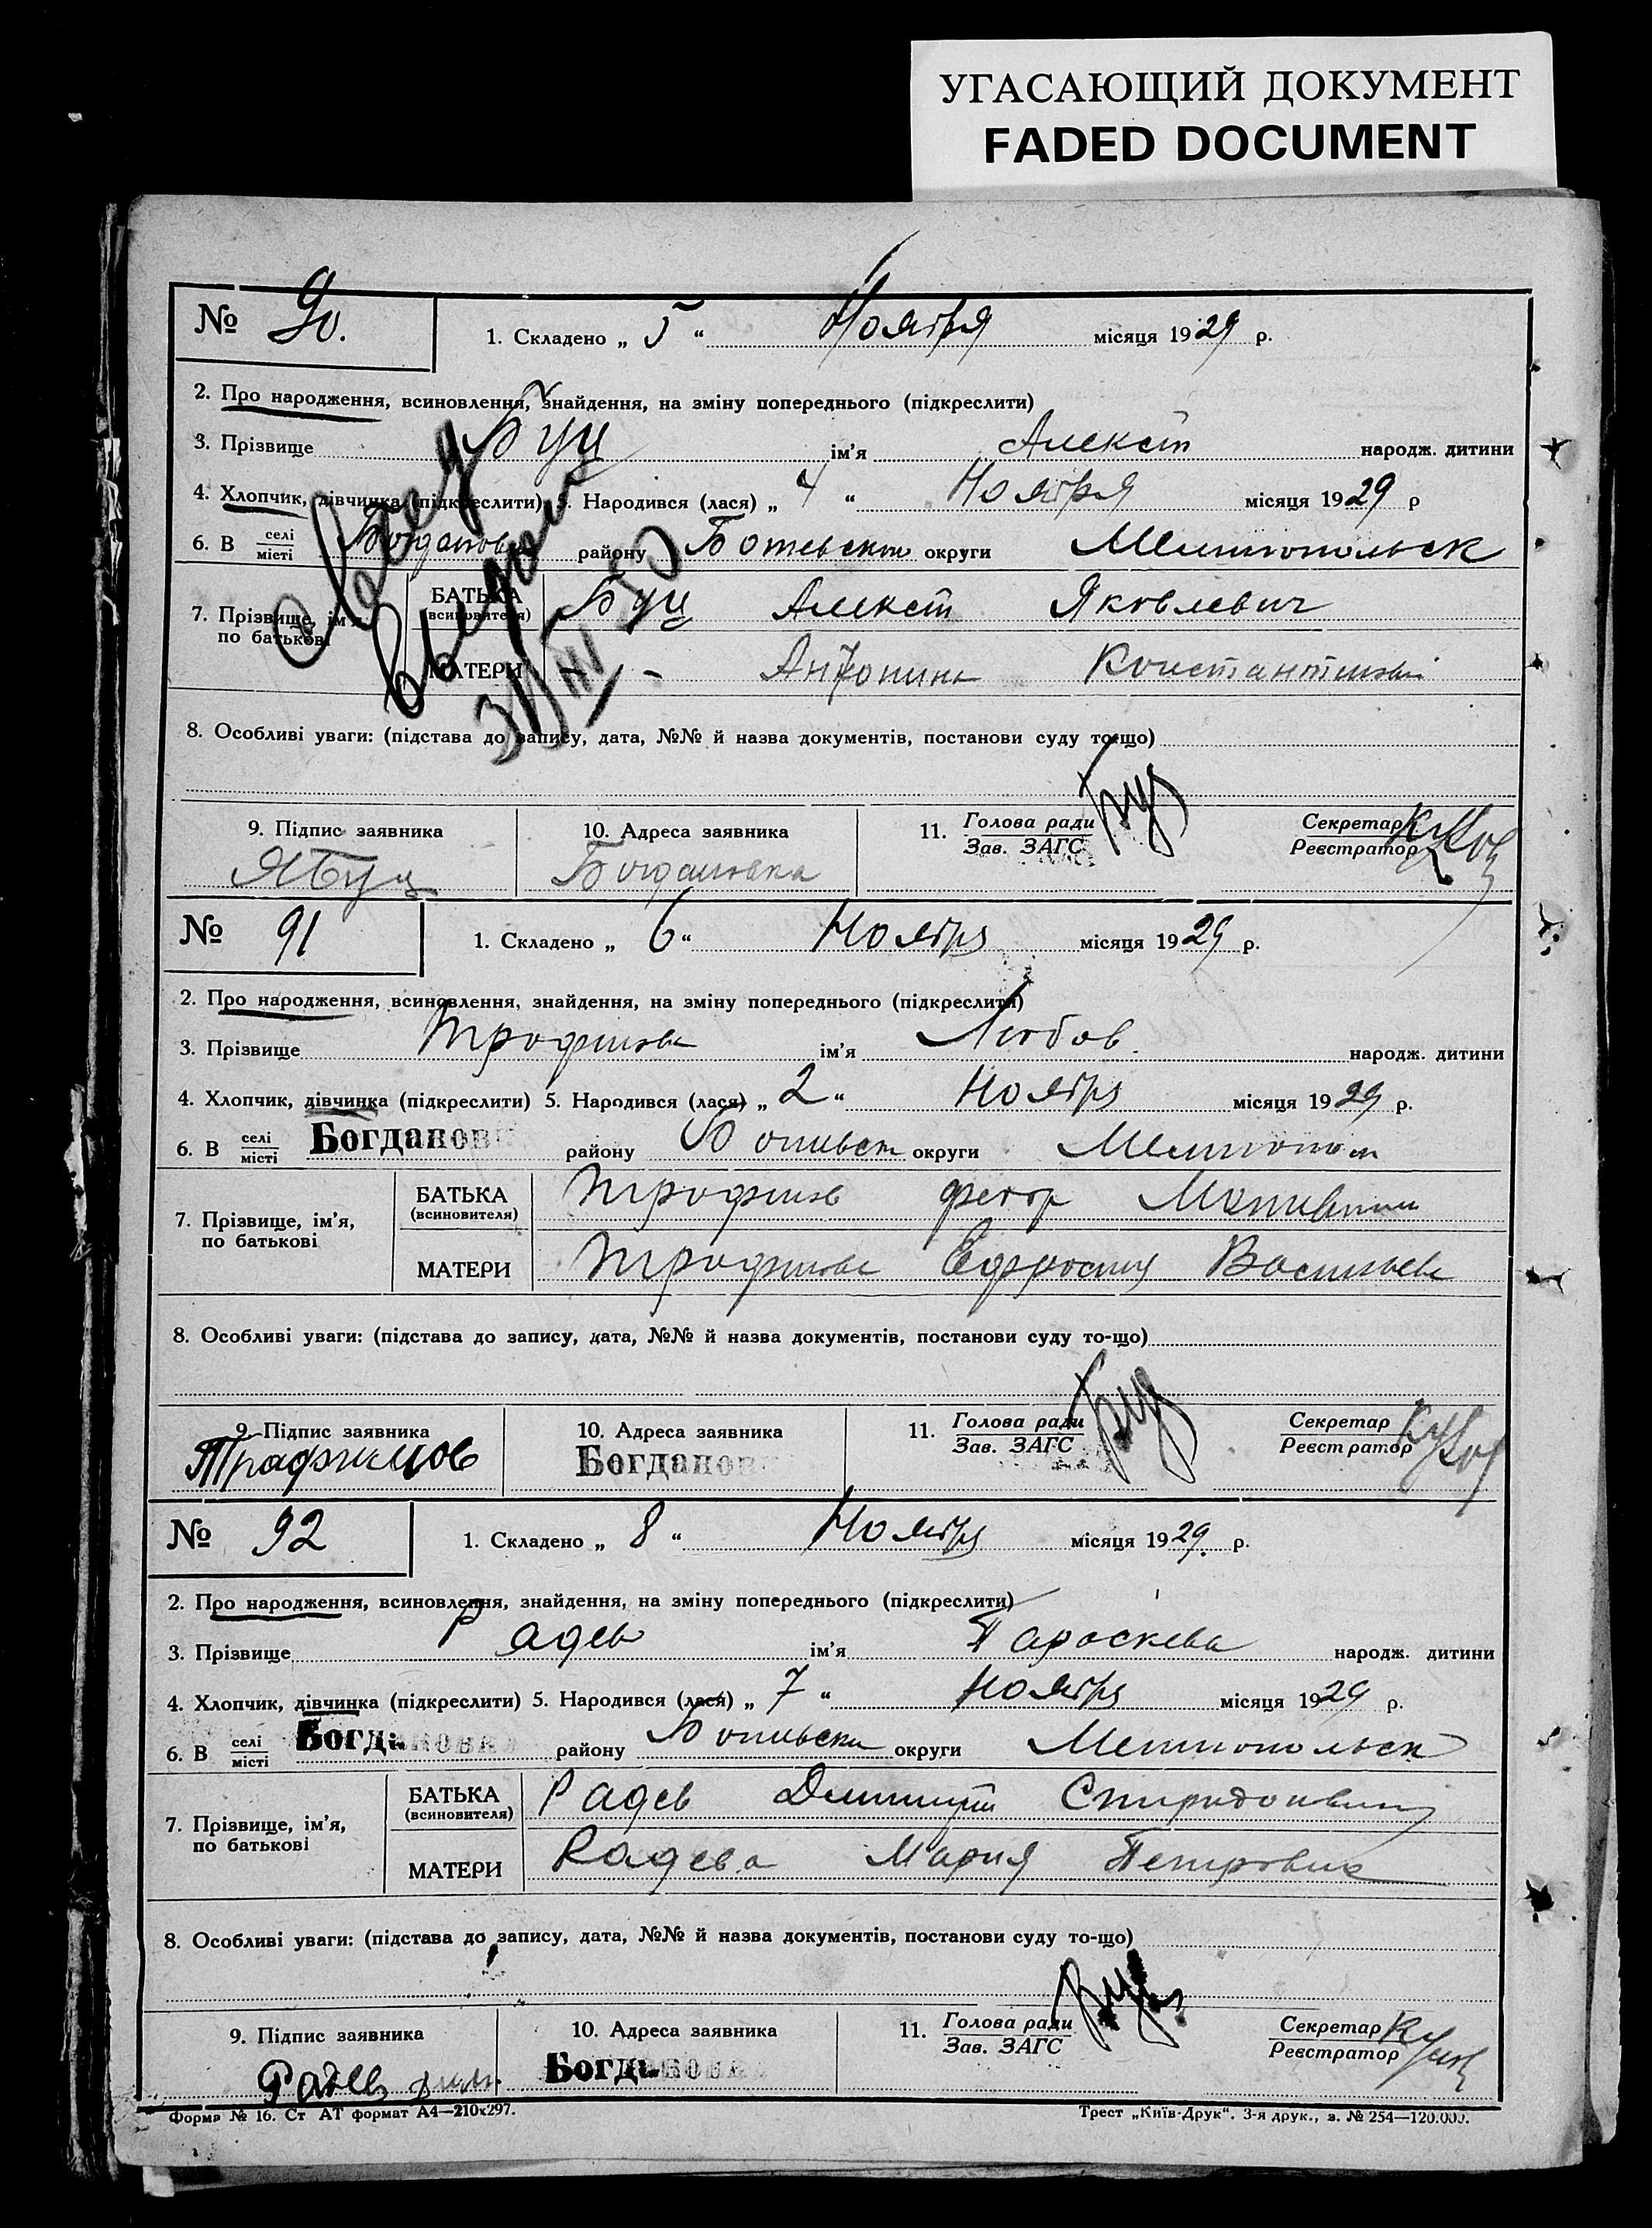 УГАСАЮЩИЙ ДОКУМЕНТ
FADED DOCUMENT
№ 90. 1. Складено „ 5 “ Ноября місяця 1929 р.
2. Про народження, всиновлення, знайдення, на зміну попереднього (підкреслити)
3. Прізвище Буц ім'я Алексей народж. дитини
4. Хлопчик, дівчинка (підкреслити) 5. Народився (лася) „ 4 “ Ноября місяця 1929 р
6. В селі/місті Богдановка району Ботевском округи Мелитопольск
7. Прізвище, ім'я, по батькові
БАТЬКА (всиновителя) Буц Алексей Яковлевич
МАТЕРИ – „ – Антонина Константинов
Выдано
30 III 50
8. Особливі уваги: (підстава до запису, дата, №№ й назва документів, постанови суду то-що)
9. Підпис заявника 10. Адреса заявника 11. Голова ради / Зав. ЗАГС Секретар / Реєстратор
ЯБуц Богдановка
№ 91 1. Складено „ 6 “ Ноября місяця 1929 р.
2. Про народження, всиновлення, знайдення, на зміну попереднього (підкреслити)
3. Прізвище Трофимова ім'я Любов. народж. дитини
4. Хлопчик, дівчинка (підкреслити) 5. Народився (лася) „ 2 “ Ноября місяця 1929 р.
6. В селі/місті Богданов району Ботивск округи Мелитопол
7. Прізвище, ім'я, по батькові
БАТЬКА (всиновителя) Трофимов Федор
МАТЕРИ Трофимова Ефросиния Васильев
8. Особливі уваги: (підстава до запису, дата, №№ й назва документів, постанови суду то-що)
9. Підпис заявника 10. Адреса заявника 11. Голова ради / Зав. ЗАГС Секретар / Реєстратор
Трафимов Богданов
№ 92 1. Складено „ 8 “ Ноября місяця 1929. р.
2. Про народження, всиновлення, знайдення, на зміну попереднього (підкреслити)
3. Прізвище Радев ім'я Параскева народж. дитини
4. Хлопчик, дівчинка (підкреслити) 5. Народився (лася) „ 7 “ Ноября місяця 1929 р.
6. В селі/місті Богдановка району Ботивски округи Мелитопольск
7. Прізвище, ім'я, по батькові
БАТЬКА (всиновителя) Радев Димитрий Спиридонович
МАТЕРИ Радева Мария Петровна
8. Особливі уваги: (підстава до запису, дата, №№ й назва документів, постанови суду то-що)
9. Підпис заявника 10. Адреса заявника 11. Голова ради / Зав. ЗАГС Секретар / Реєстратор
Радев Богдановка
Форма № 16. Ст АТ формат А4—210х297. Трест „Київ-Друк“. 3-я друк., з. № 254—120.000.